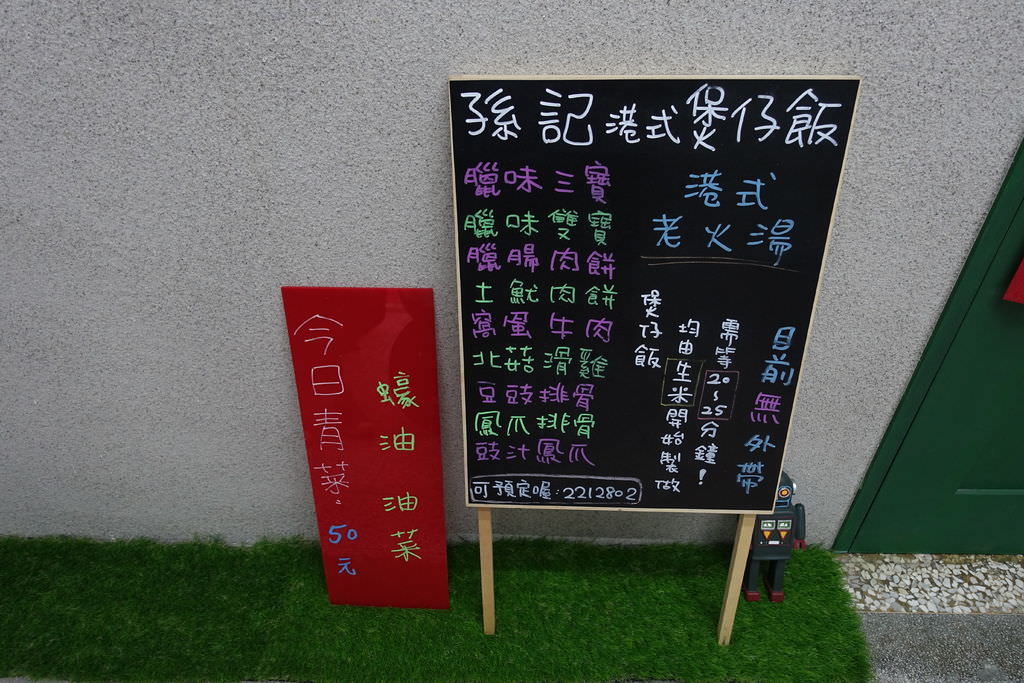 孫記港式煲仔飯
臘味三寶
臘味雙寶
臘腸肉餅
土魷肉餅
窩蛋牛肉
北菇滑雞
豆豉排骨
鳳爪排骨
豉汁鳳爪
可預定喔:2212802
港式
老火湯
煲仔飯
均由生米開始製做
需等20~25分鐘!
目前無外帶
今日青菜:50元
蠔油 油菜